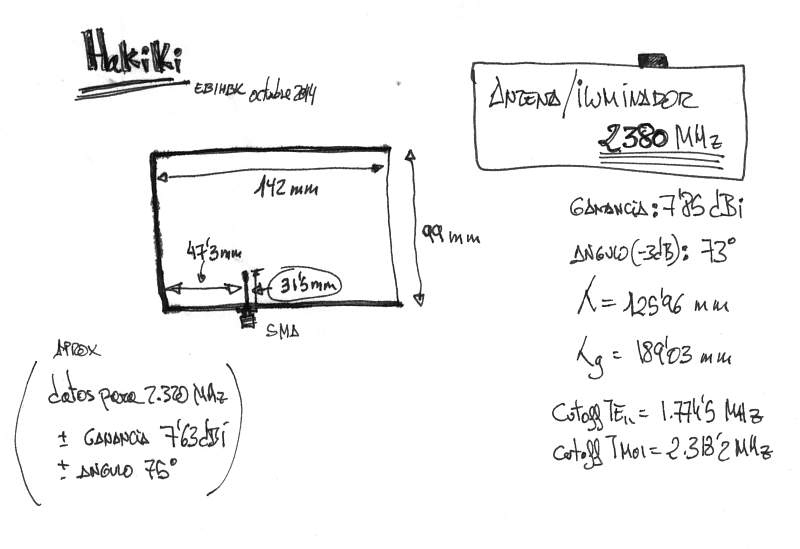 Hakiki
EB1HBK octubre 2014
ANTENA/ILUMINADOR
2380 MHz
142 mm
99 mm
47'3mm
31'5mm
SMA
GANANCIA: 7'85 dBi
ANGULO (-3dB): 73°
λ = 125'96 mm
λg = 189'03 mm
Cutoff TE11 = 1.774'5 MHz
Cutoff TM01 = 2.318'2 MHz
APROX
datos para 2.320 MHz
± GANANCIA 7'63 dBi
± ANGULO 75°